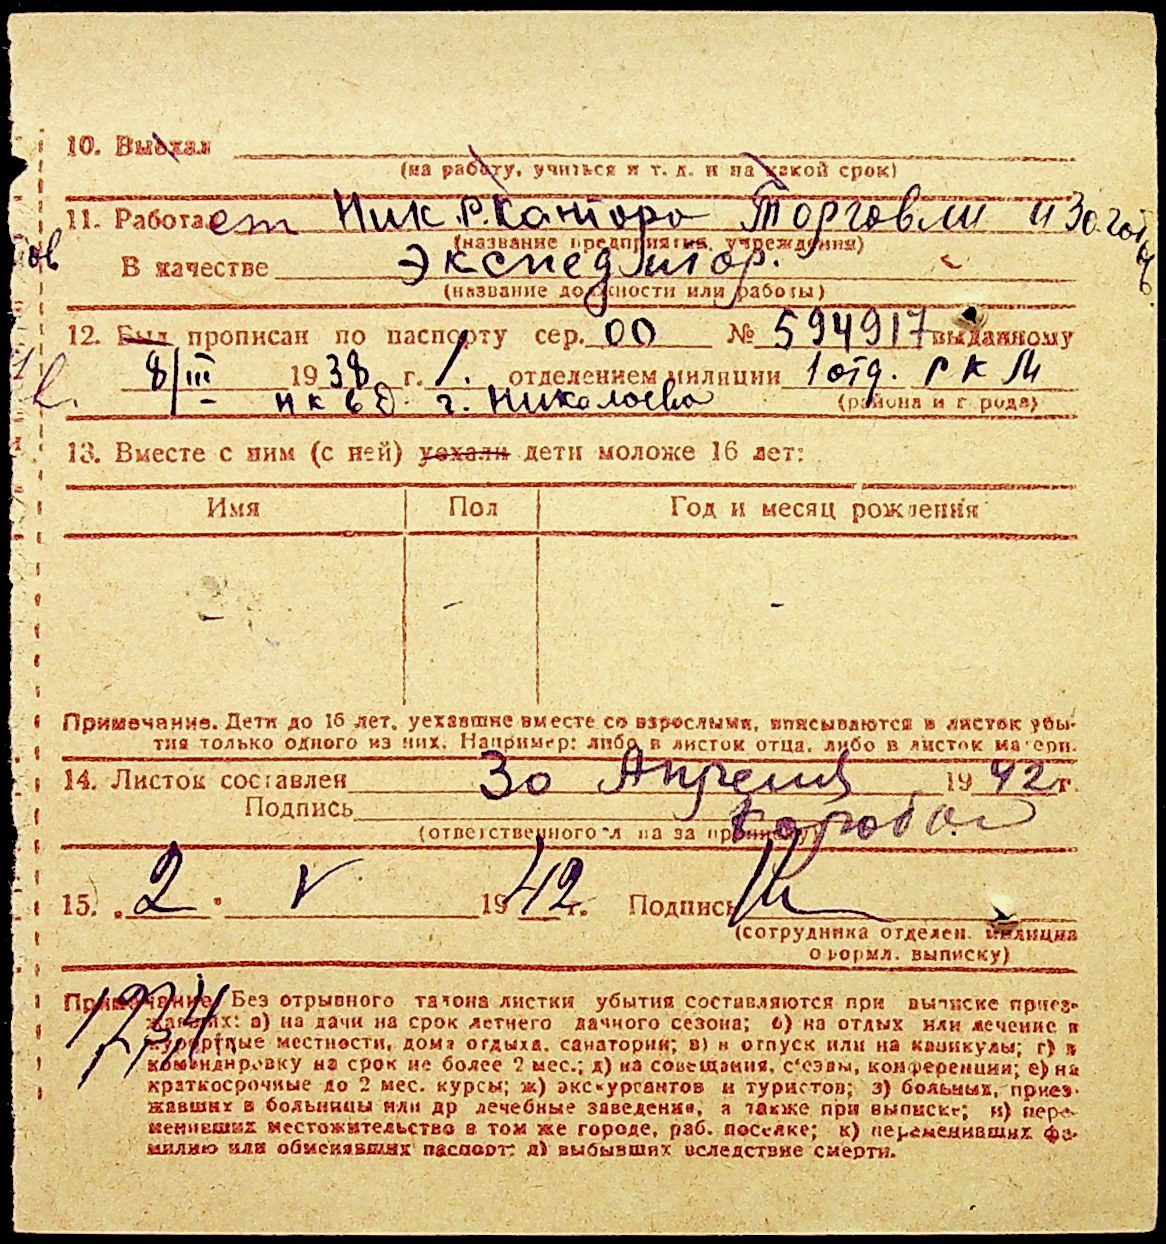 10. Выехал
(на работу, учиться и т. д. и на какой срок)
11. Работает Ник.Р.Контора Торговли и Загот
(название предприятия, учреждения)
ов
В качестве Экспедитор.
(название должности или работы)
12. Был прописан по паспорту сер. 00 № 594917 выданному
8/III 1938 г. 1. отделением милиции 1 отд. РКМ
нквд г. Николаева (района и города)
13. Вместе с ним (с ней) уехали дети моложе 16 лет:
Имя Пол Год и месяц рождения
- - -
Примечание. Дети до 16 лет, уехавшие вместе со взрослыми, вписываются в листок убы-
тия только одного из них. Например: либо в листок отца, либо в листок матери.
14. Листок составлен 30 Апреля 1942 г.
Подпись
(ответственного л на за прописку)
15. „2“ V 1942 г. Подпись
(сотрудника отделен. милиции
оформл. выписку)
1234
Примечание. Без отрывного талона листки убытия составляются при выписке приез-
жавших: а) на дачи на срок летнего дачного сезона; б) на отдых или лечение в
курортные местности, дома отдыха, санатории; в) в отпуск или на каникулы; г) в
командировку на срок не более 2 мес.; д) на совещания, с'езды, конференции; е) на
краткосрочные до 2 мес. курсы; ж) экскурсантов и туристов; з) больных, приез-
жавших в больницы или др лечебные заведения, а также при выписке; и) пере-
менивших местожительство в том же городе, раб. поселке; к) переменивших фа-
милию или обменявших паспорт; л) выбывших вследствие смерти.